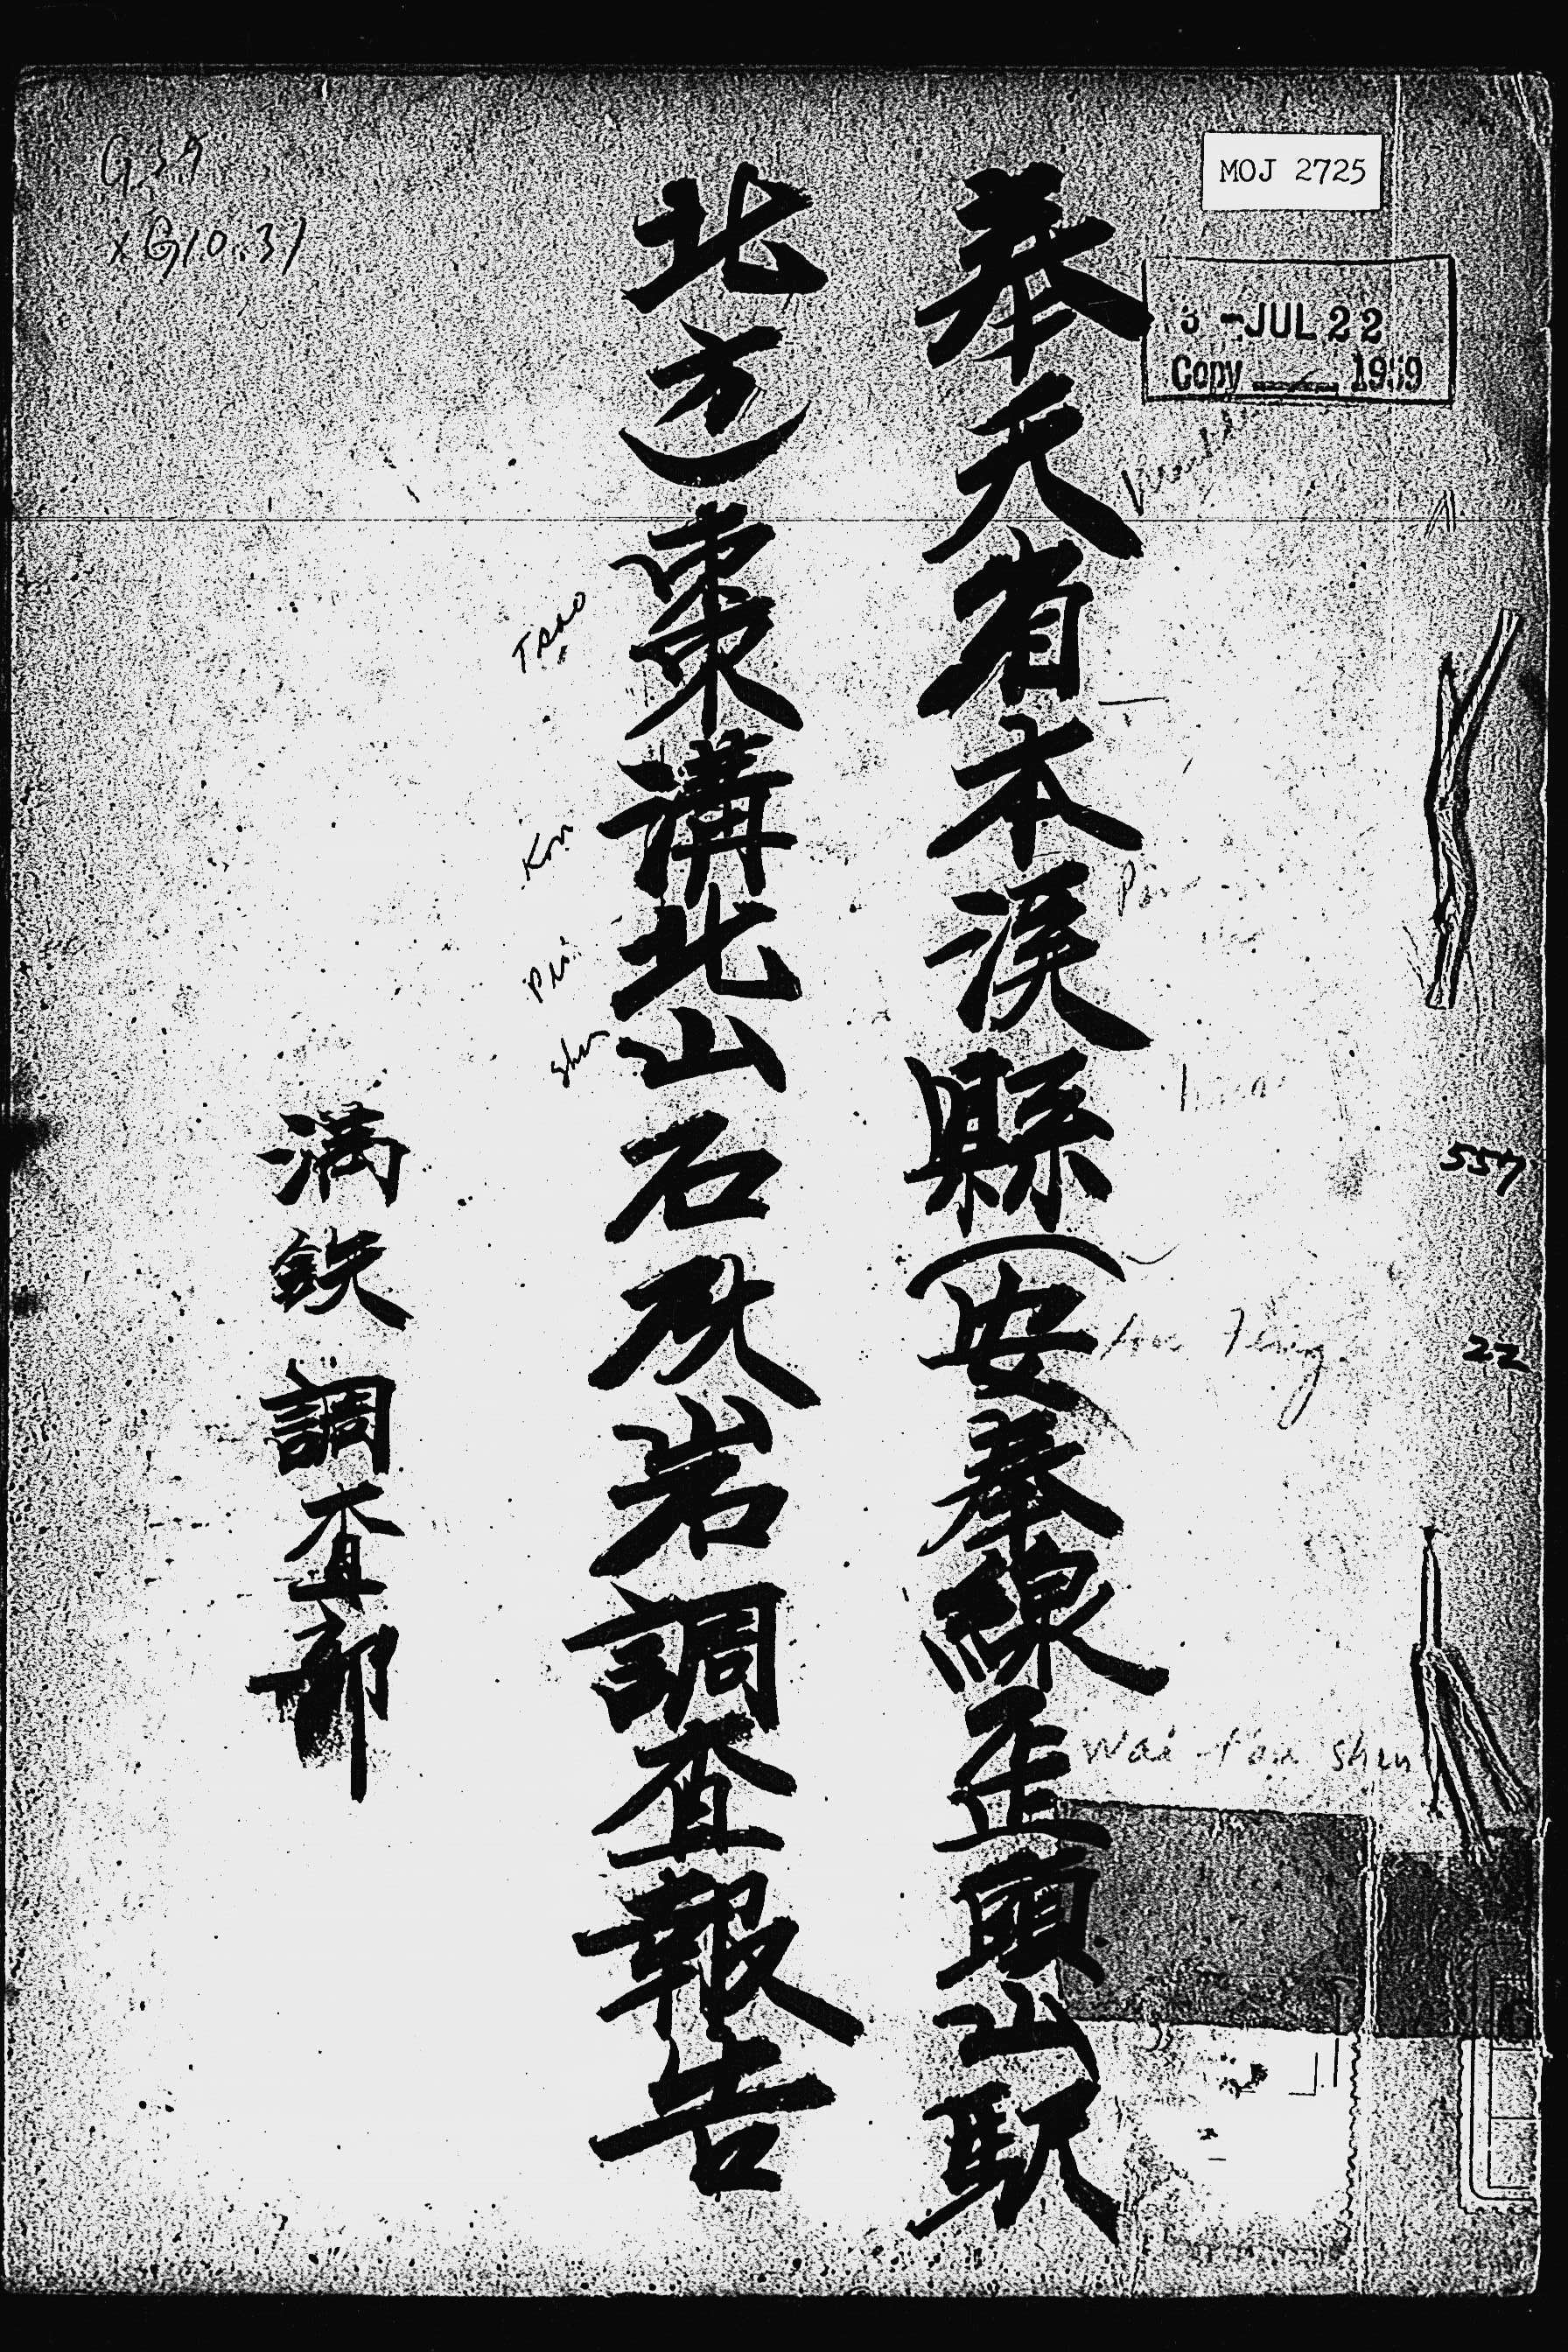 MOJ 2725
JUL 22
Copy 1959
G 39
x G10.37
奉天省本渓縣(安奉線歪頭山駅
北方)棗溝北山石灰岩調査報告
満鉄調査部
Tsao
Kou
Pei
Shan
Feng
Wai t'ou shan
557
22